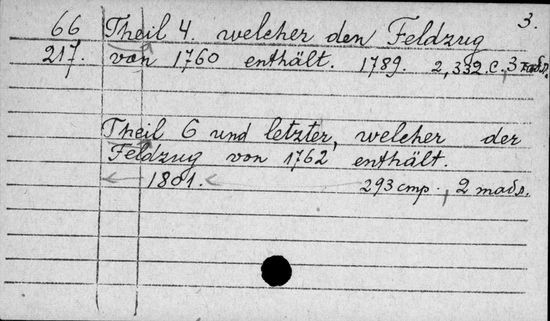 3.
66 Theil 4. welcher den Feldzug
217. von 1760 enthält. 1789. 2,332 c., 3 табл.
Theil 6 und letzter, welcher der
Feldzug von 1762 enthält.
1801. 293 стр., 2 табл.